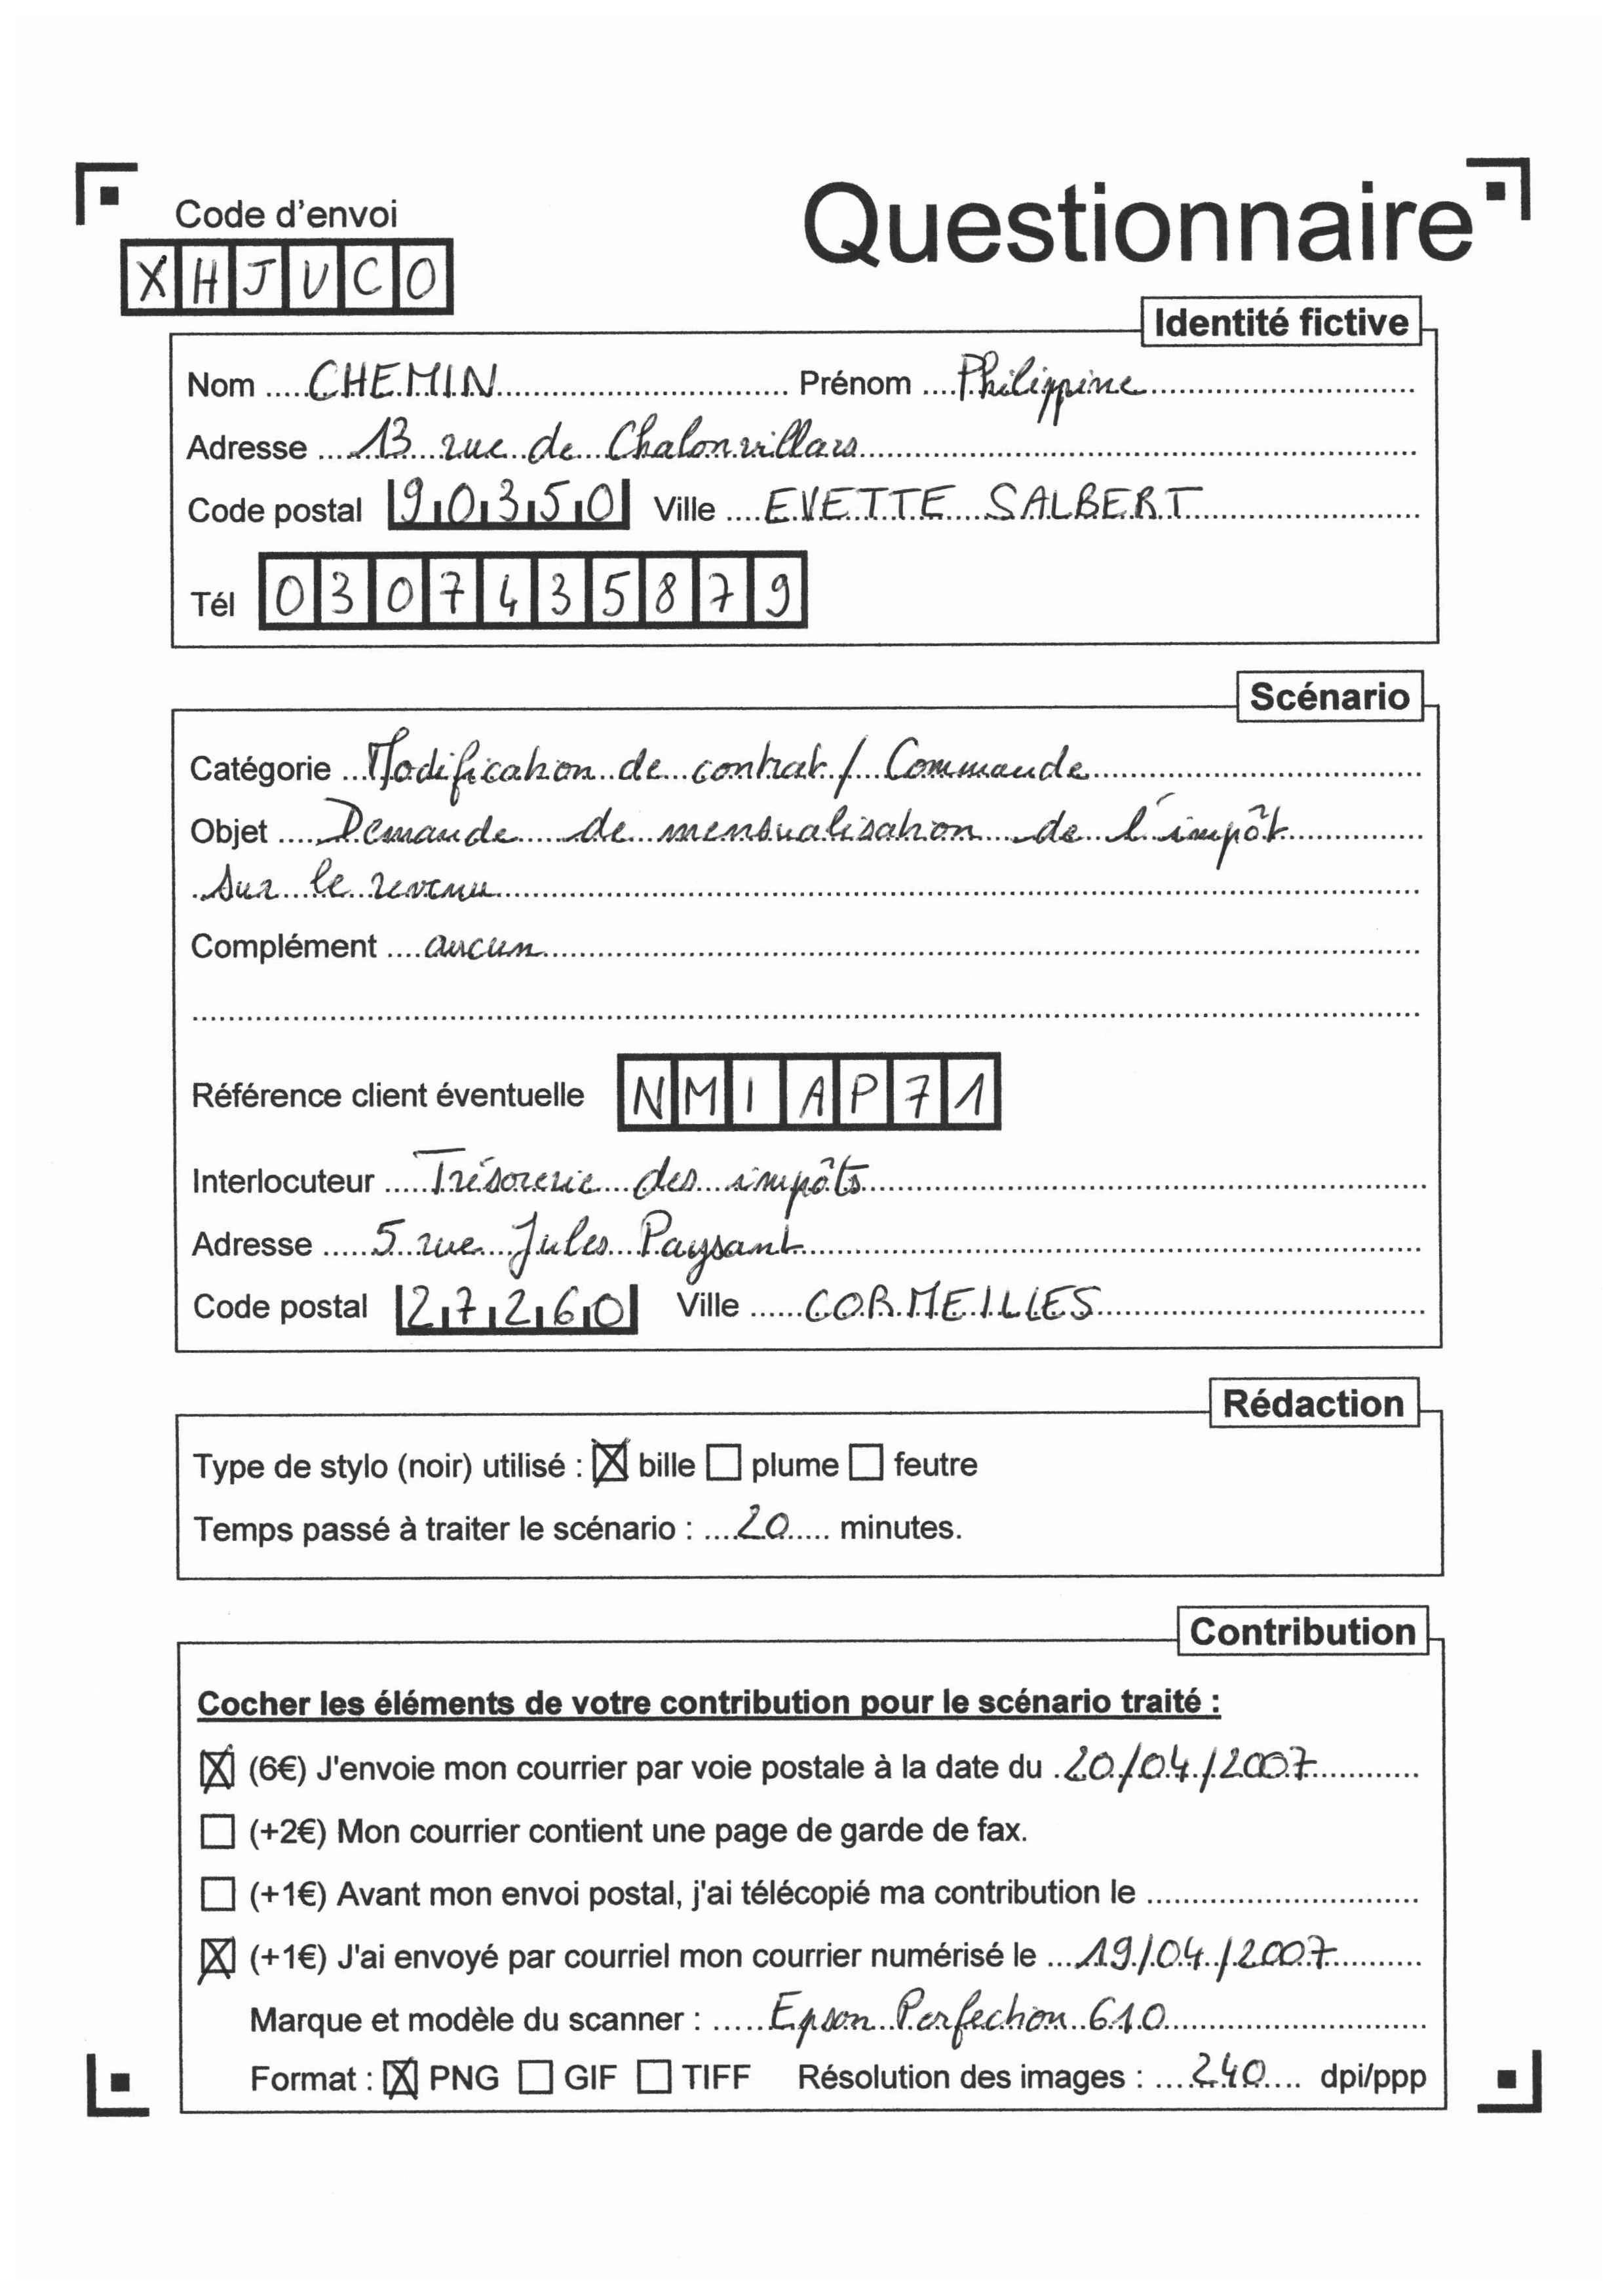 Code d'envoi
Questionnaire
XHJUCO
Identité fictive
Nom CHEMIN Prénom Philippine
Adresse 13 rue de Chalonvillars
Code postal 90350 Ville EVETTE SALBERT
Tél 0307435879
Scénario
Catégorie Modification de contrat / Commande
Objet Demande de mensualisation de l'impôt
sur le revenu
Complément aucun
Référence client éventuelle NMIAP71
Interlocuteur Trésorerie des impôts
Adresse 5 rue Jules Paysant
Code postal 27260 Ville CORMEILLES
Rédaction
Type de stylo (noir) utilisé : ☒ bille ☐ plume ☐ feutre
Temps passé à traiter le scénario : 20 minutes.
Contribution
Cocher les éléments de votre contribution pour le scénario traité :
☒ (6€) J'envoie mon courrier par voie postale à la date du 20/04/2007
☐ (+2€) Mon courrier contient une page de garde de fax.
☐ (+1€) Avant mon envoi postal, j'ai télécopié ma contribution le
☒ (+1€) J'ai envoyé par courriel mon courrier numérisé le 19/04/2007
Marque et modèle du scanner : Epson Perfection 610
Format : ☒ PNG ☐ GIF ☐ TIFF Résolution des images : 240 dpi/ppp